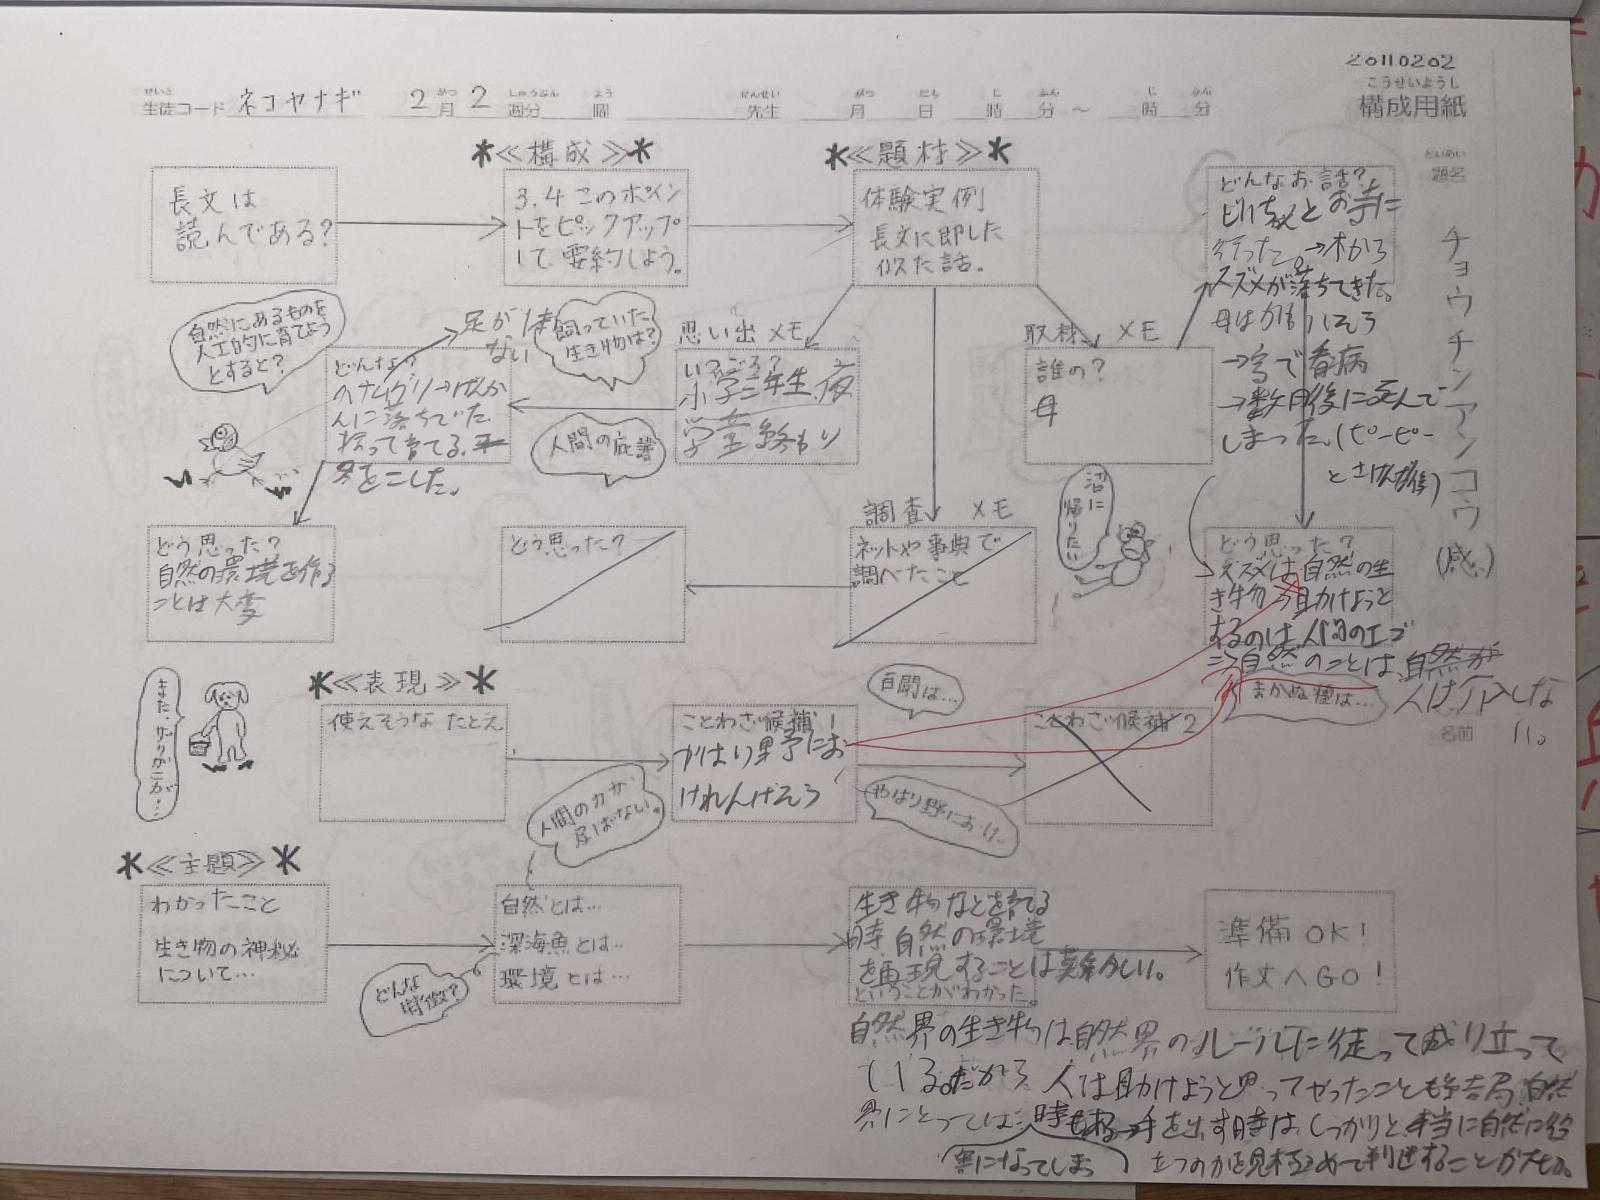 20110202
こうせいようし
構成用紙
せいと
生徒コード ネコヤナギ 2月2週分 曜 先生 月 日 時 分～ 時 分
だいめい
題名
チョウチンアンコウ(感)
名前
≪構成≫
≪題材≫
長文は
読んである?
3.4このポイン
トをピックアップ
して、要約しよう。
体験実例
長文に即した
似た話。
どんなお話?
とお寺に
行った。→木から
スズメが落ちてきた。
母は
→家で看病
→数日後に死んで
しまった。(ピーピー
とさけんだ後)
自然にあるものを
人工的に育てよう
とすると?
足が1本
ない
飼っていた
生き物は?
思い出メモ
いつごろ?
小学二年生、夜
学童終わり
取材メモ
誰の?
母
どんな?
んに落ちていた
拾って育てる。
人間の庇護
沼に
帰りたい
調査メモ
ネットや事典で
調べたこと
どう思った?
どう思った?
自然の環境を作る
ことは大変
どう思った?
スズメは自然の生
き物→助けようと
するのは、人間のエゴ
⇒自然のことは、自然が
人は介入しな
い。
まかぬ種は…
≪表現≫
使えそうなたとえ
ことわざ候補1
やはり野にお
けれんげそう
百聞は…
ことわざ候補2
人間の力が
及ばない。
やはり野におけ…
また、ザリガニが!
≪主題≫
わかったこと
生き物の神秘
について…
どんな
特徴?
自然とは…
深海魚とは…
環境とは…
生き物などを育てる
時、自然の環境
を再現することは難しい。
ということがわかった。
準備OK!
作文へGO!
自然界の生き物は自然界のルールに従って成り立って
いる。だから、人は助けようと思ってやったことも結局、自然
界にとっては 時もある→手を出す時は、しっかりと、本当に自然に役
害になってしまう
立つのかを見極めて判断することが大切。